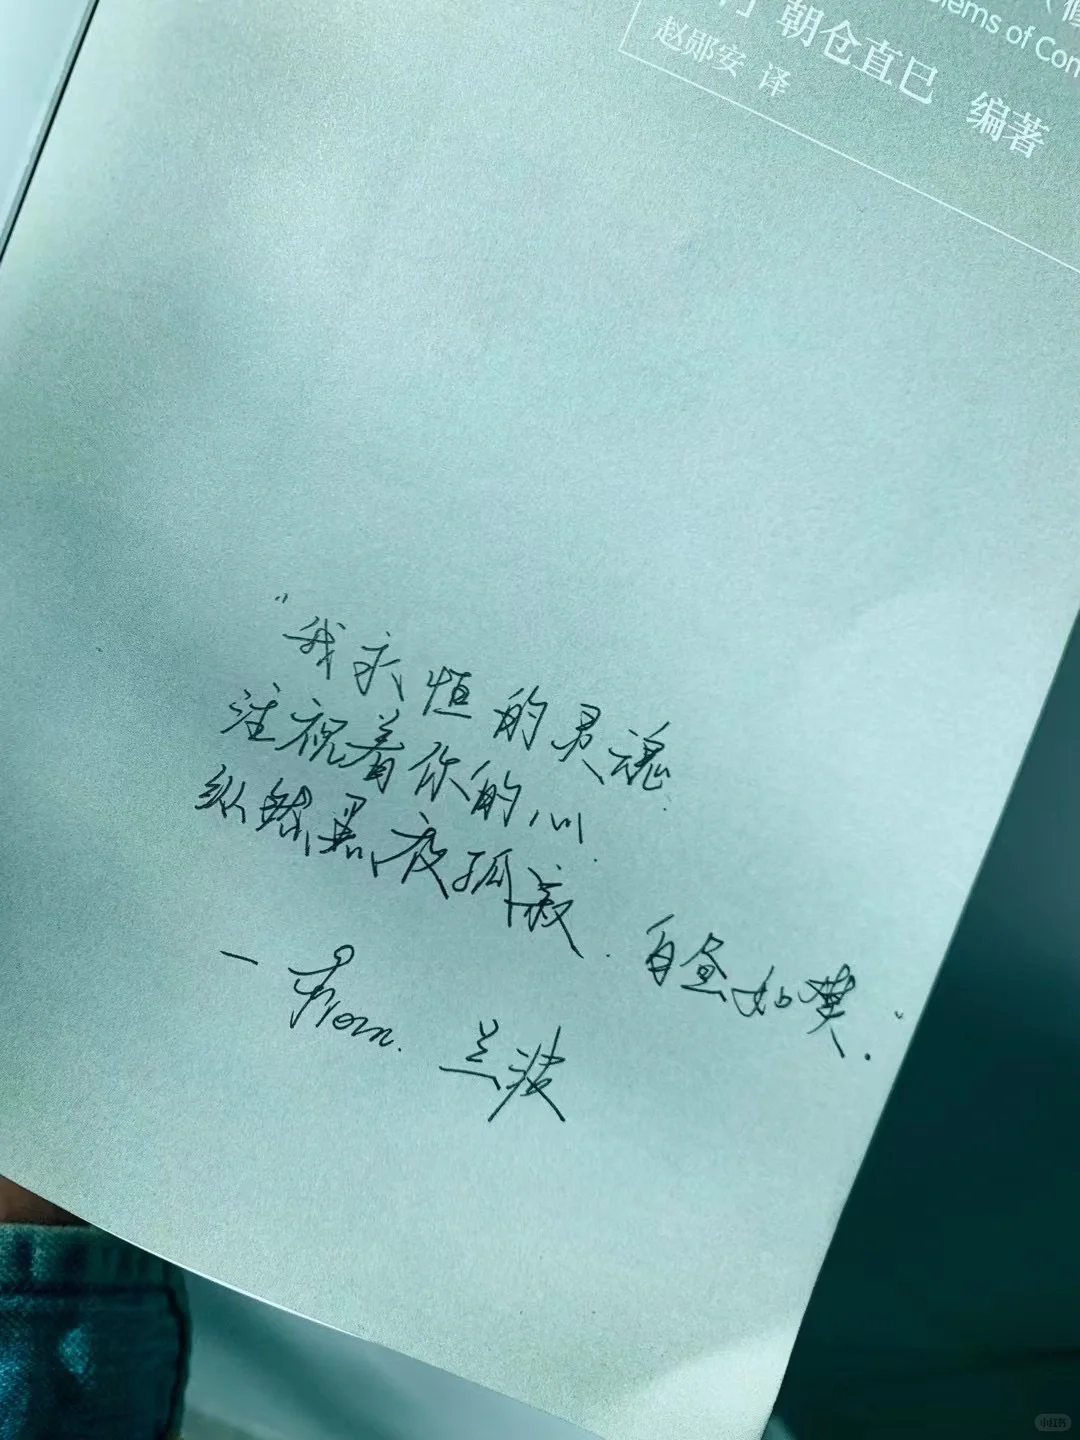 lems of Con
朝仓直巳 编著
赵郧安 译
"我永恒的灵魂
注视着你的心
纵然黑夜孤寂.白昼如焚."
一 From. 兰波
小红书